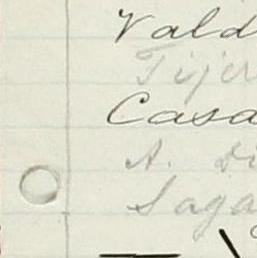 Vald
Tijer
Casa
A. Di
Saga